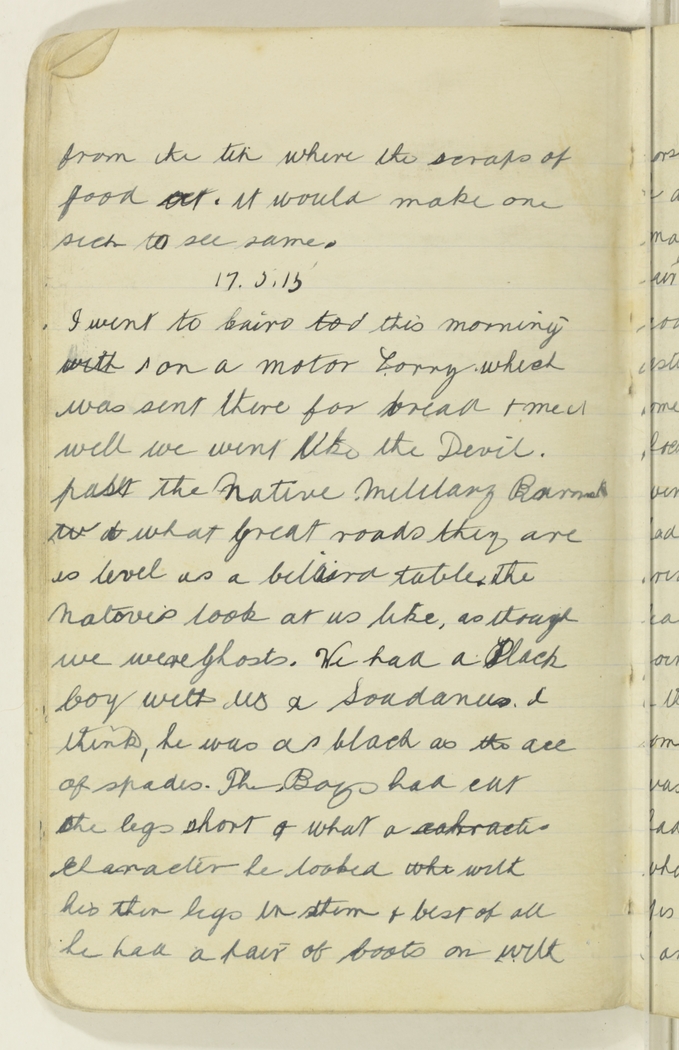 from the tin where the scraps of
food are. it would make one
sick to see same.
17.5.15
I went to Cairo tod this morning
with on a motor Lorry which
was sent there for bread & meat
well we went like the Devil.
past the Native Military Barracks
what great roads they are
is level as a billiard table, the
Natives look at us like, as though
we were Ghosts. We had a Black
boy with us a Soudanese I
think, he was as black as the ace
of spades. The Boys had cut
the legs short & what a
character he looked whe with
his thin legs in them & best of all
he had a pair of boots on with